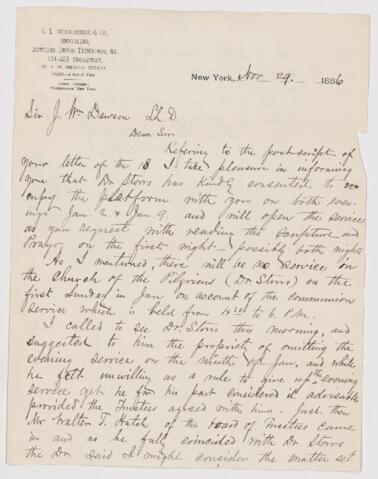 C. L. & CO.
IMPORTERS,
BUTTONS, DRESS TRIMMINGS, &C.
451-453 BROADWAY,
New York, Nov 29. 1886
Sir J. Wm Dawson LL.D.
Dear Sir
Refering to the postscript of
your letter of the 18 I take pleasure in informing
you that Dr Storrs has kindly consented to
occupy the platform with you on both even-
ings Jan. 2. & Jan 9. and will open the service
as you request with reading the Scripture and
Prayer on the first night - possibly both nights
As I mentioned, there will be no service in
the Church of the Pilgrims (Dr Storrs) on the
first Sunday in Jan on account of the communion
service which is held from 4 to 6 P.M.
I called to see Dr. Storrs this morning, and
suggested to him the propriety of omitting the
evening service on the ninth of Jan. and while
he felt unwilling as a rule to give up the evening
service yet he for his part considered it advisable
provided the Trustees agreed with him. Just then
Mr Walter T. Hatch of the board of Trustees came
in and as he fully coincided with Dr Storrs
the Dr. said I might consider the matter set